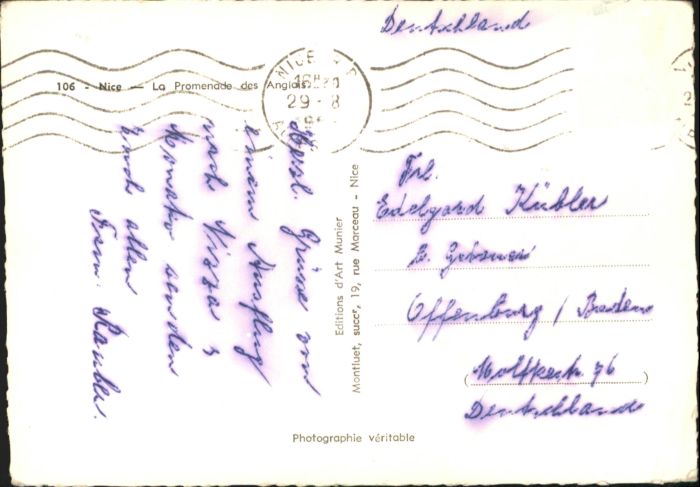 Deutschland
106 - Nice — La Promenade des Anglais
NICE
16H
29 - 8
Herzl. Grüsse von
einem Ausflug
nach Nizza &
Monako senden
Euch allen
Fam.
Editions d'Art Munier
Montluet, succr, 19, rue Marceau - Nice
Frl.
Edelgard Kübler
Offenburg / Baden
(Moltkestr. 76)
Deutschland
Photographie véritable